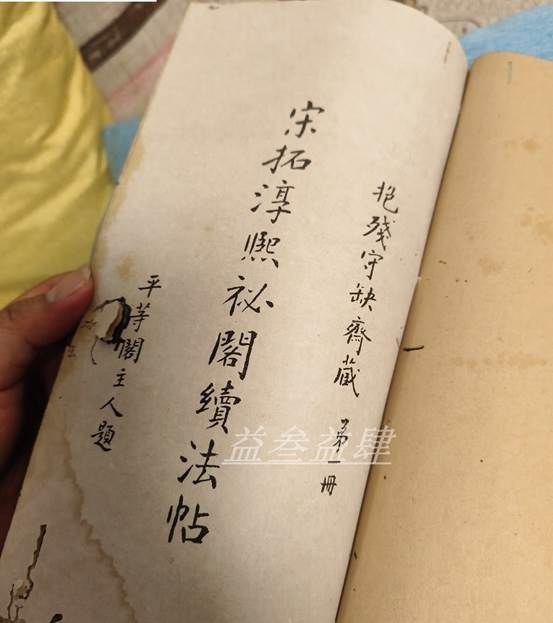 抱殘守缺齋藏 第一冊
宋拓淳熙祕閣續法帖
平等閣主人題
益叁益肆